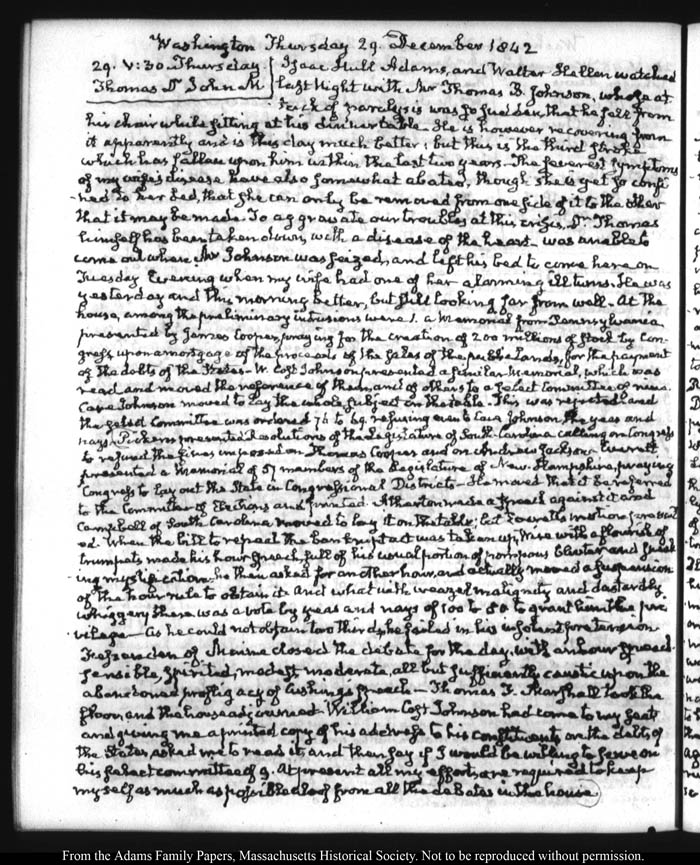 Washington Thursday 29. December 1842
29. V:30. Thursday
Thomas D John M
Isaac Hull Adams, and Walter Hellen watched
last Night with Mr Thomas B. Johnson, whose at
tack of paralysis was so sudden, that he fell from
his chair while sitting at his dinner table. He is however recovering from
it apparently and is this day much better; but this is the third stroke
which has fallen upon him within the last two years. The severest symptoms
of my wife's disease have also somewhat abated, though she is yet so confi
-ned to her bed, that she can only be removed from one side of it to the other
that it may be made. To aggravate our troubles at this crisis, Dr. Thomas
himself has been taken down, with a disease of the heart was unable to
come out when Mr Johnson was seized, and left his bed to come here on
Tuesday Evening when my wife had one of her alarming ill turns. He was
yesterday and this morning better, but still looking far from well. At the
house, among the preliminary intrusions were 1. a Memorial from Pennsylvania
presented by James Cooper, praying for the creation of 200 millions of Stock by Con-
gress, upon a mortgage of the proceeds of the sales of the public Lands, for the payment
of the debts of the States. W. Cost Johnson presented a similar Memorial, which was
read and moved the reference of them, and of others to a select Committee of nine.
Cave Johnson moved to lay the whole subject on the table. This was rejected and
the select Committee was ordered 76 to 69. refusing even to Cave Johnson, the yeas and
nays. Pickens presented Resolutions of the Legislature of South Carolina calling on Congress
to refund the fines imposed on Thomas Cooper and on Andrew Jackson. Everett
presented a Memorial of 57 members of the Legislature of New-Hampshire, praying
Congress to lay out the State in Congressional Districts. He moved that it be referred
to the Committee of Elections and printed. Atherton made a speech against it and
Campbell of South Carolina moved to lay it on the table; but Everett's motion prevail
ed. When the bill to repeal the bankrupt act was taken up, Wise with a flourish of
trumpets made his hour speech, full of his usual portion of pompous bluster and
-ing mystification. he then asked for another hour, and actually moved a suspension
of the hour rule to obtain it. And what with weazel malignity and dastardly
whiggery there was a vote by yeas and nays of 100 to 80 to grant him the pri
vilege — As he could not obtain two thirds, he failed in his insolent pretension
Fessenden of Maine closed the debate for the day, with an hour speech
sensible, spirited, modest moderate, all but sufficiently caustic upon the
abandoned profligacy of Cushing's speech — Thomas F. Marshall took the
floor, and the house adjourned. William Cost Johnson had come to my seat
and giving me a printed copy of his address to his constituents on the debts of
the States, asked me to read it and then say if I would be willing to serve on
his select committee of 9. At present all my efforts are required to keep
myself as much as possible aloof from all the debates in the house.
From the Adams Family Papers, Massachusetts Historical Society. Not to be reproduced without permission.